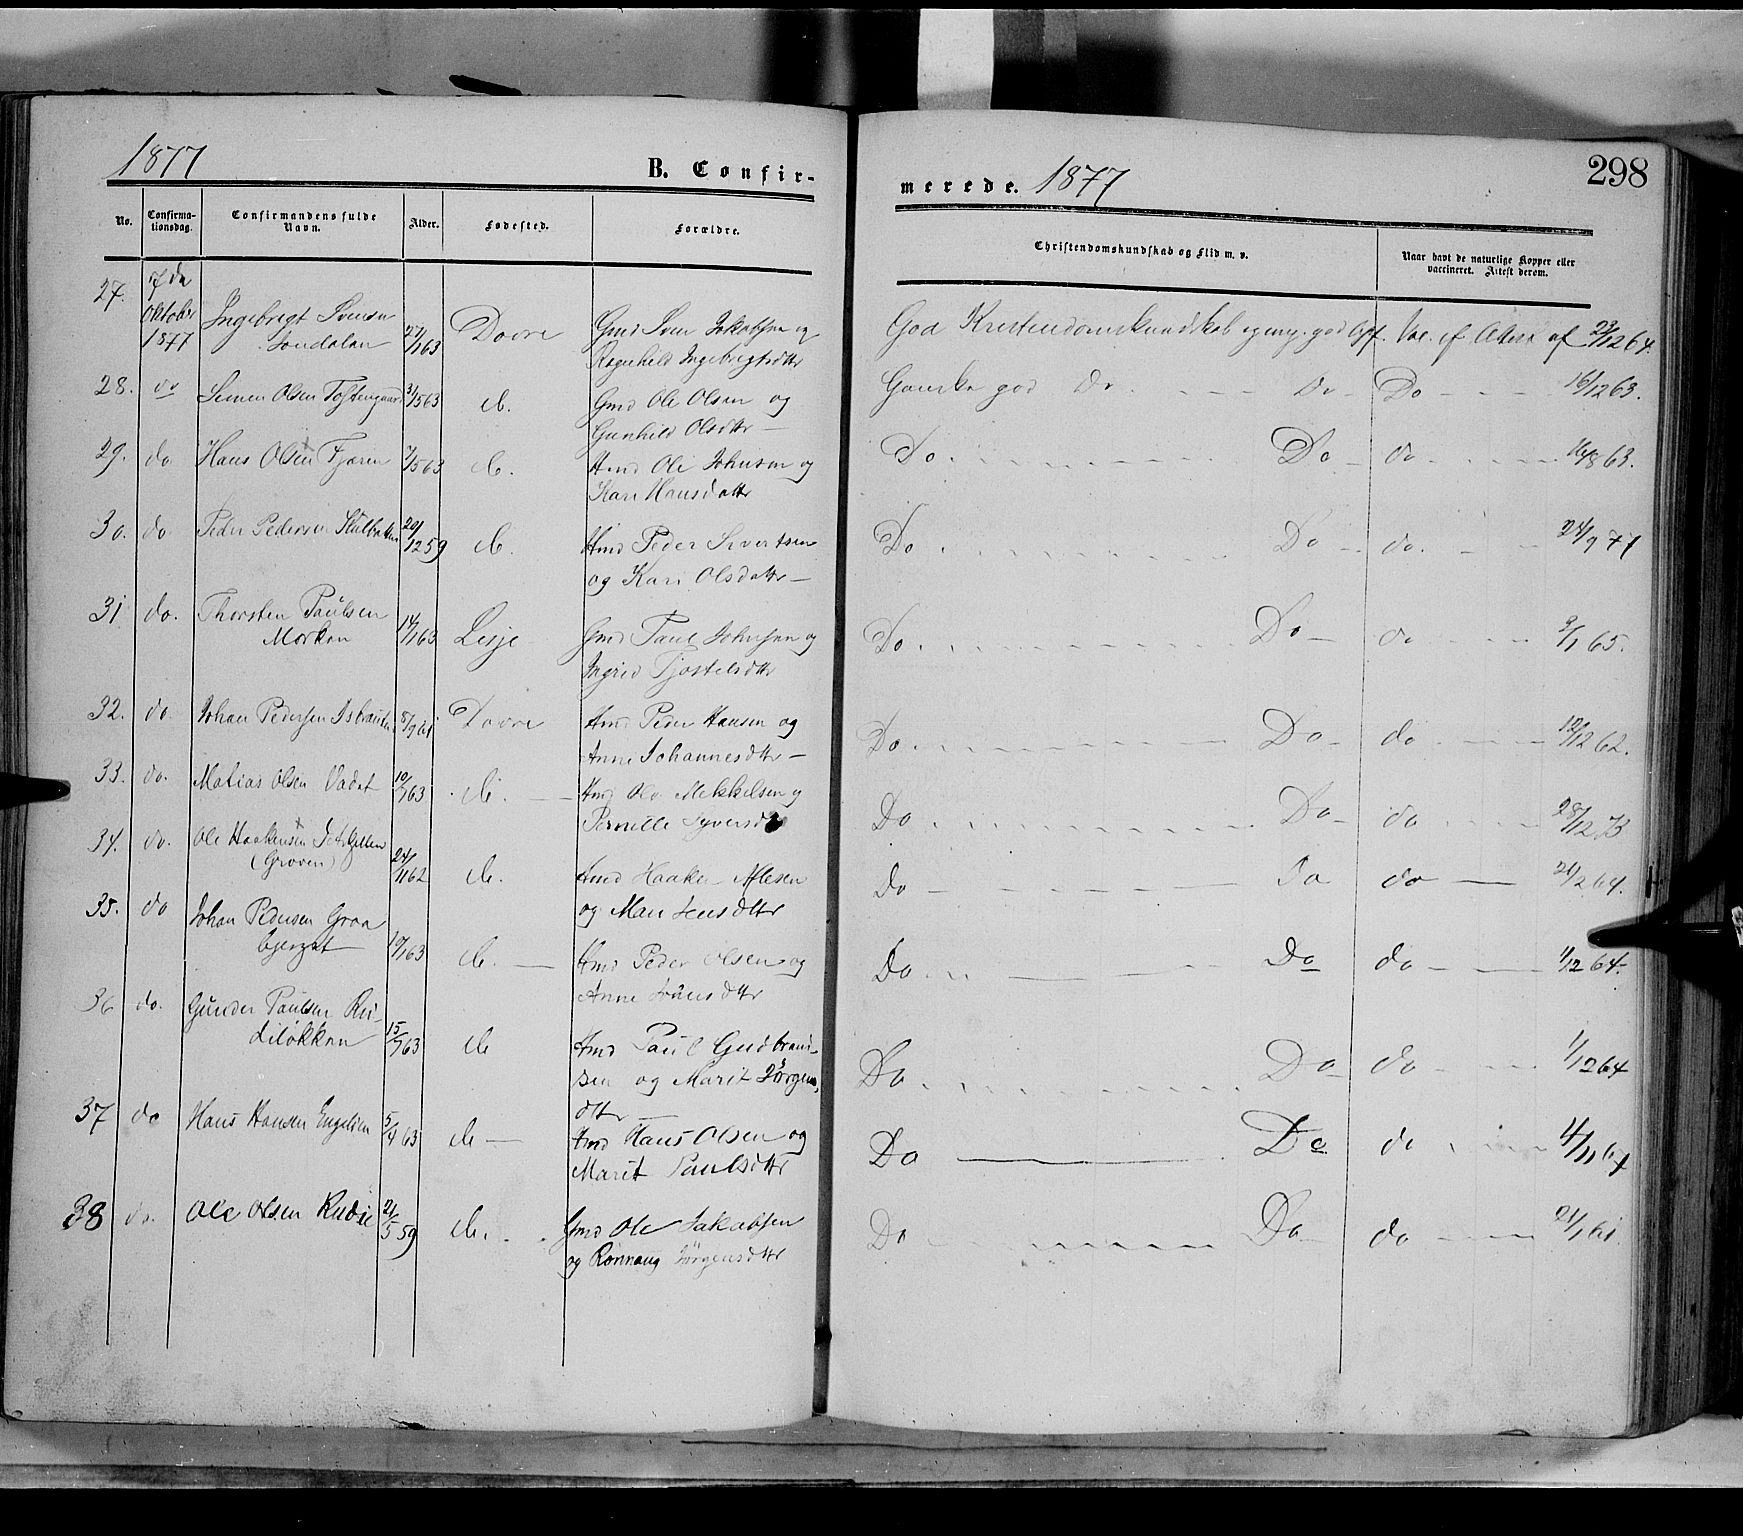 1877
B. Confir-
No.
Confirma-
tionsdag.
Confirmandens fulde
Navn.
Alder.
Fødested.
Forældre.
27. 7de
Oktober
1877
Ingebrigt Svensen
27/1 63 Dovre Gmd Sven Jakobsen og
Ragnhild Ingebrigtsdttr
28. do Simen Olsen Toftengaard 3/5 63 do. Gmd Ole Olsen og
Gunhild Olsdttr —
29. do Hans Olsen Fjæren 2/5 63 do. Hmd Ole Johnsen og
Kari Hansdattr
30. do. Peder Pedersen 20/12 59 do. Hmd Peder Sivertsen
og Kari Olsdattr —
31 do. Thorsten Paulsen
Morken 14/1 63 Lesje Gmd Paul Johnsen og
Ingrid Tjostelsdttr
32. do. Johan Pedersen 5/9 61 Dovre Hmd Peder Hansen og
Anne Johannesdttr —
33. do. Matias Olsen Vadet 10/7 63 do. — Hmd Ole Mekkelsen og
Pernille Syversd
34. do. Ole Haakensen
(Groven) 24/11 62 do. Hmd Haaken
og Mari Jensdttr
35. do Johan Pedersen Graa
bjerget 19/1 63 do. — Hmd Peder Olsen og
Anne Jonsdttr
36 do. Gunder Paulsen Ru-
diløkken 15/7 63 do Hmd Paul Gudbrand-
sen og Marit Jørgens-
dttr —
37 do Hans Hansen Engelien 5/4 63 do — Hmd Hans Olsen og
Marit Paulsdttr
38 do. Ole Olsen Rudie 21/5 59 do. Gmd Ole Jakobsen
og Rønnaug Jørgensdttr
merede. 1877
298
Christendomskundskab og Flid m. v.
Naar havt de naturlige Kopper eller
vaccineret. Attest derom.
God Kristendomskundskab og meg. god Opf. Vac. ef Attest af 23/12 64.
Ganske god Do Do Do 16/12 63.
Do Do do 16/8 63.
Do Do do. 24/9 71
Do. Do do 9/1 65.
Do. Do do 12/12 62.
Do Do do 28/12 73
Do Do do 21/2 64.
Do Do do 1/12 64.
Do Do do 1/12 64
Do Do do 4/11 64
Do Do do 21/1 61.